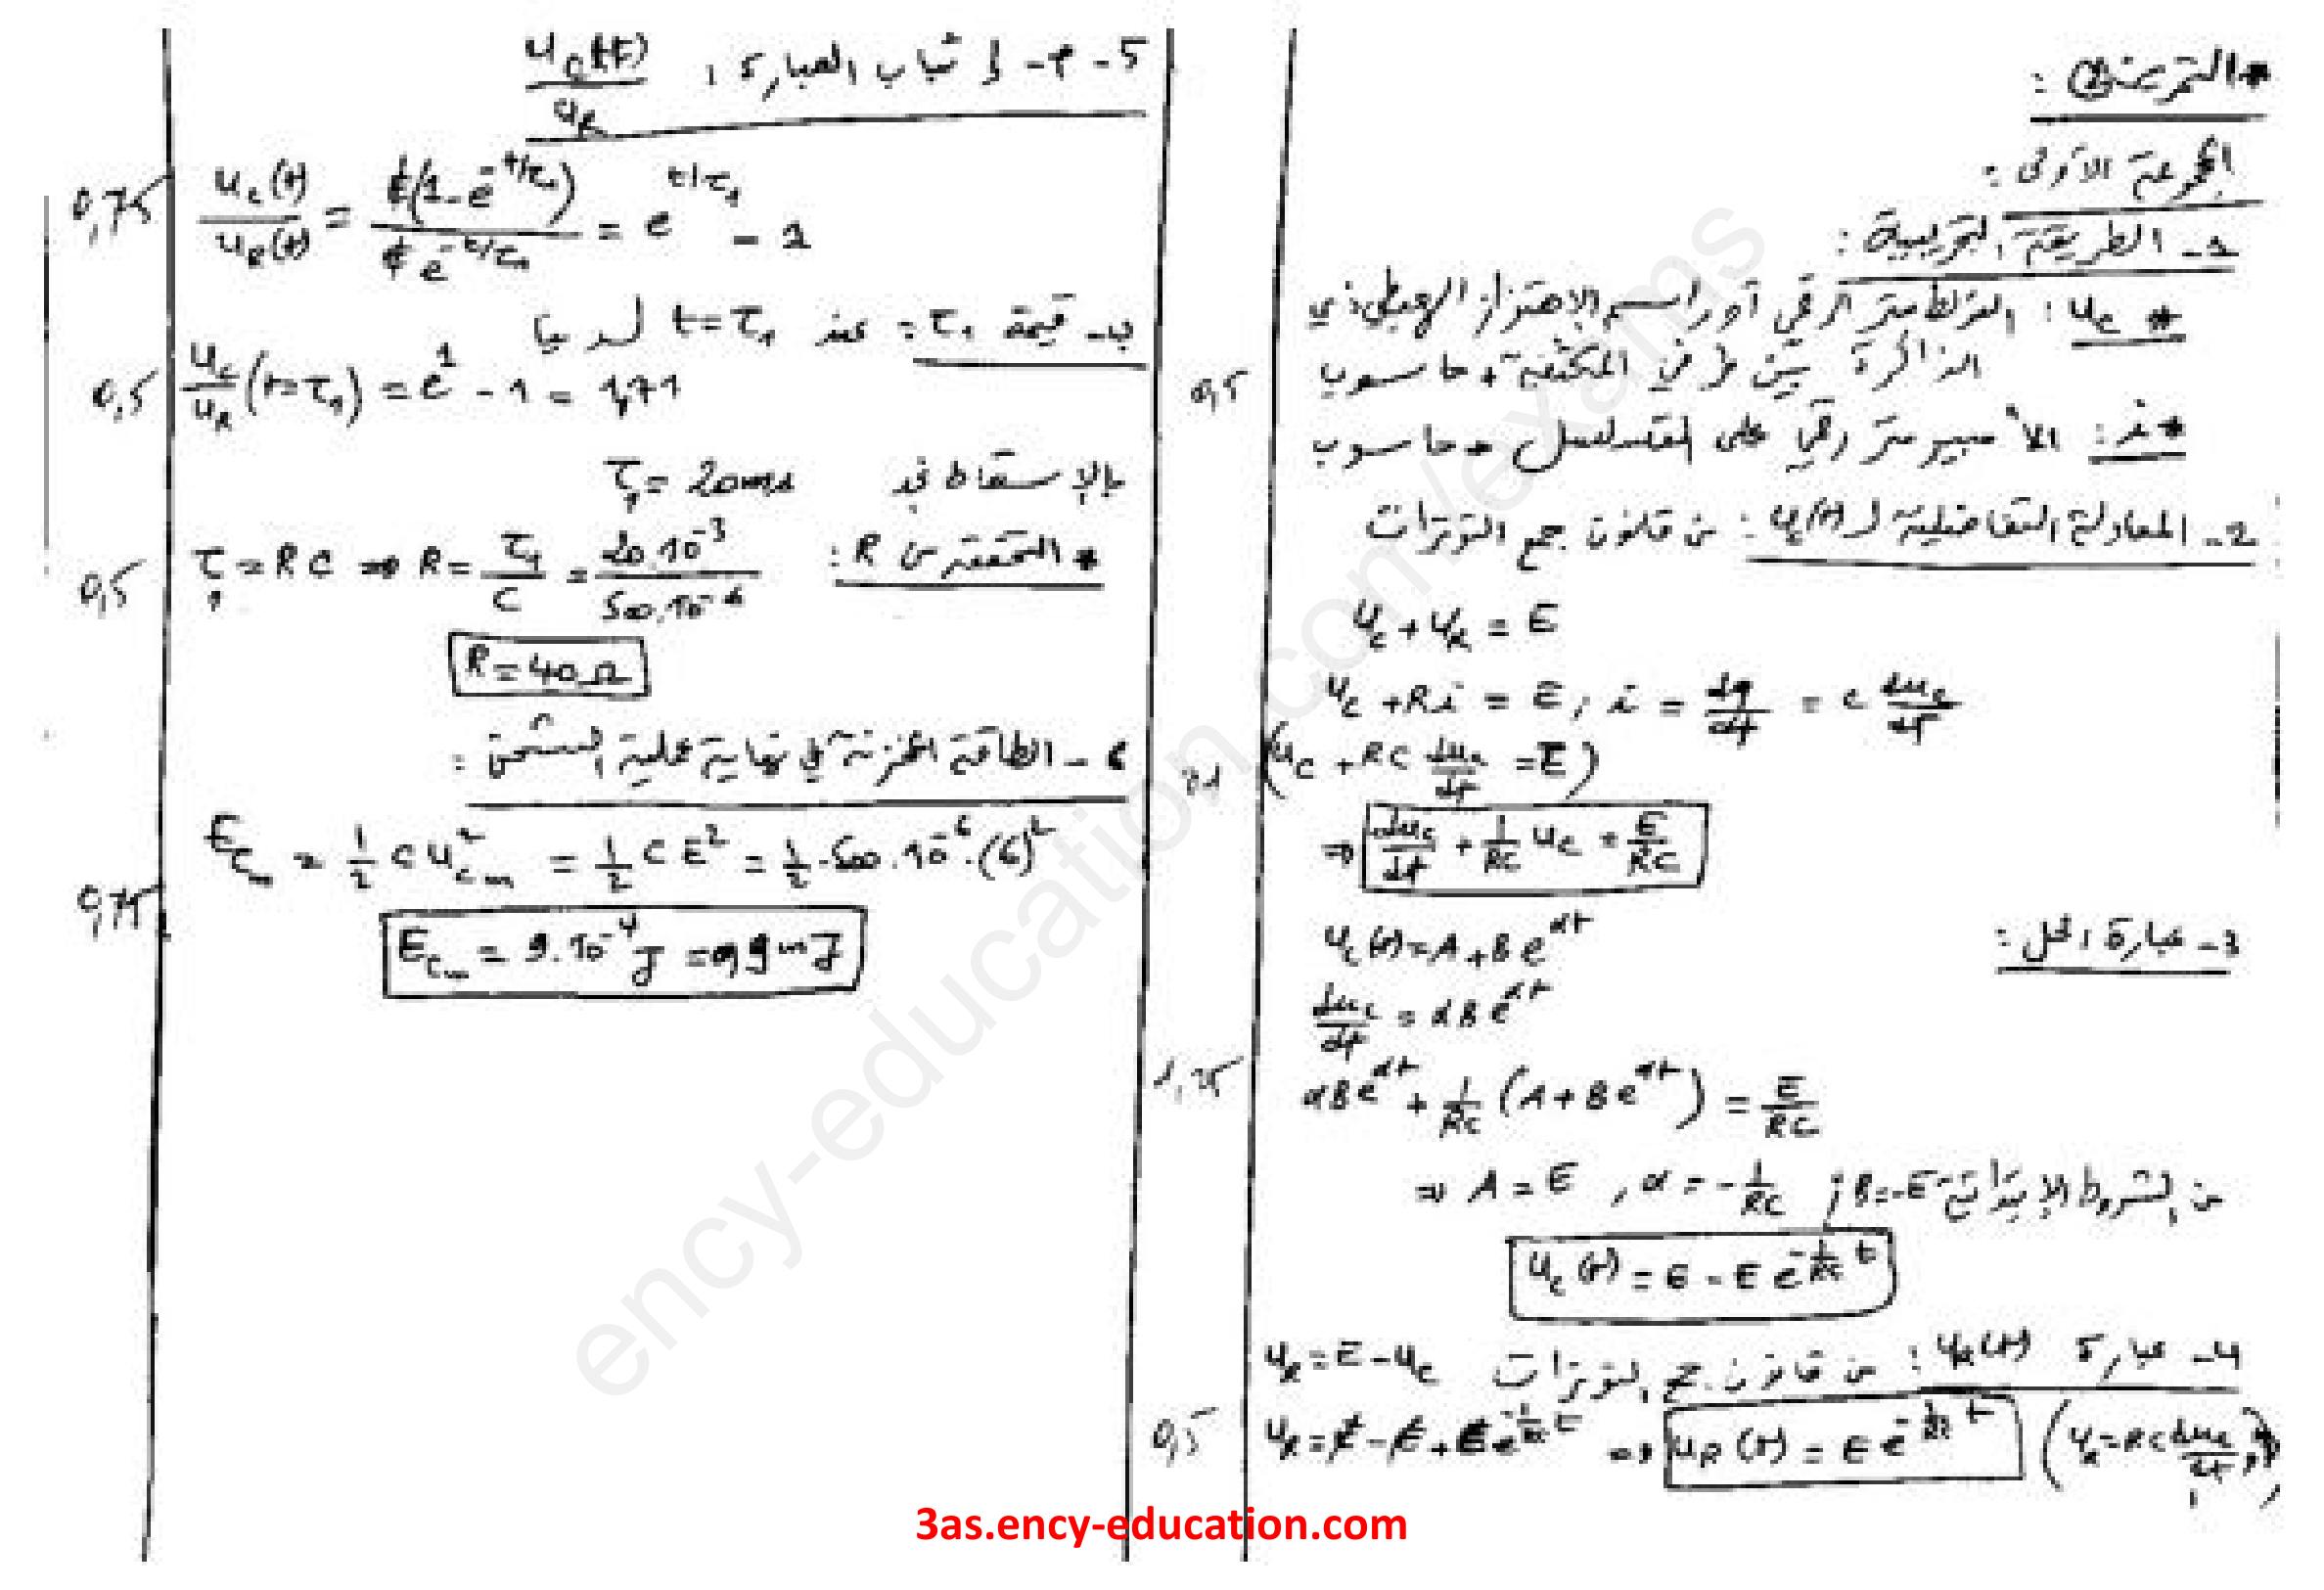 * التمرين :
المجموعة الأولى :
1 - الطريقة التجريبية :
* u_c : الفولطمتر الرقمي أو راسم الاهتزاز المهبطي ذي
0,5 الذاكرة بين طرفي المكثفة + حاسوب
* i : الأمبيرمتر رقمي على التسلسل + حاسوب
2 - المعادلة التفاضلية لـ u_c(t) : من قانون جمع التوترات
u_c + u_R = E
u_c + Ri = E , i = dq/dt = c du_c/dt
(u_c + RC du_c/dt = E)
⇒ du_c/dt + 1/RC u_c = E/RC
3 - عبارة الحل : u_c(t) = A + B e^{αt}
du_c/dt = αB e^{αt}
1,25 αB e^{αt} + 1/RC (A + B e^{αt}) = E/RC
⇒ A = E , α = -1/RC ; B = -E من الشروط الابتدائية
u_c(t) = E - E e^{-1/RC t}
4 - عبارة u_R(t) : من قانون جمع التوترات u_R = E - u_c
0,5 u_R = E - E + E e^{-1/RC t} ⇒ u_R(t) = E e^{-1/RC t} (u_R = RC du_c/dt)
5 - أ - إثبات العبارة : u_c(t)/u_R
0,75 u_c(t)/u_R(t) = E(1 - e^{-t/τ₁})/E e^{-t/τ₁} = e^{t/τ₁} - 1
ب - قيمة τ₁ : عند t = τ₁ لدينا
0,5 u_c/u_R (t = τ₁) = e^1 - 1 = 1,71
بالإسقاط نجد τ₁ = 20 ms
* التحقق من R :
0,5 τ₁ = RC ⇒ R = τ₁/C = 20.10^{-3}/500.10^{-6}
R = 40 Ω
6 - الطاقة المخزنة في نهاية عملية الشحن :
E_{Cm} = 1/2 C u_{cm}^2 = 1/2 C E^2 = 1/2 . 500 . 10^{-6} . (6)^2
0,75 E_{Cm} = 9.10^{-4} J = 0,9 mJ
ency-education.com/exams
3as.ency-education.com